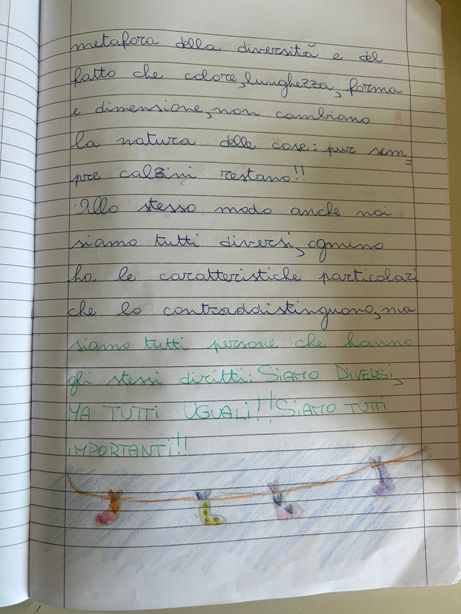 metafora della diversità e del
fatto che colore, lunghezza, forma
e dimensione, non cambiano
la natura delle cose: pur sem=
pre calzini restano!!
Allo stesso modo anche noi
siamo tutti diversi, ognuno
ha le caratteristiche particolari
che lo contraddistinguono, ma
siamo tutti persone che hanno
gli stessi diritti: SIAMO DIVERSI,
MA TUTTI UGUALI!! SIAMO TUTTI
IMPORTANTI!!